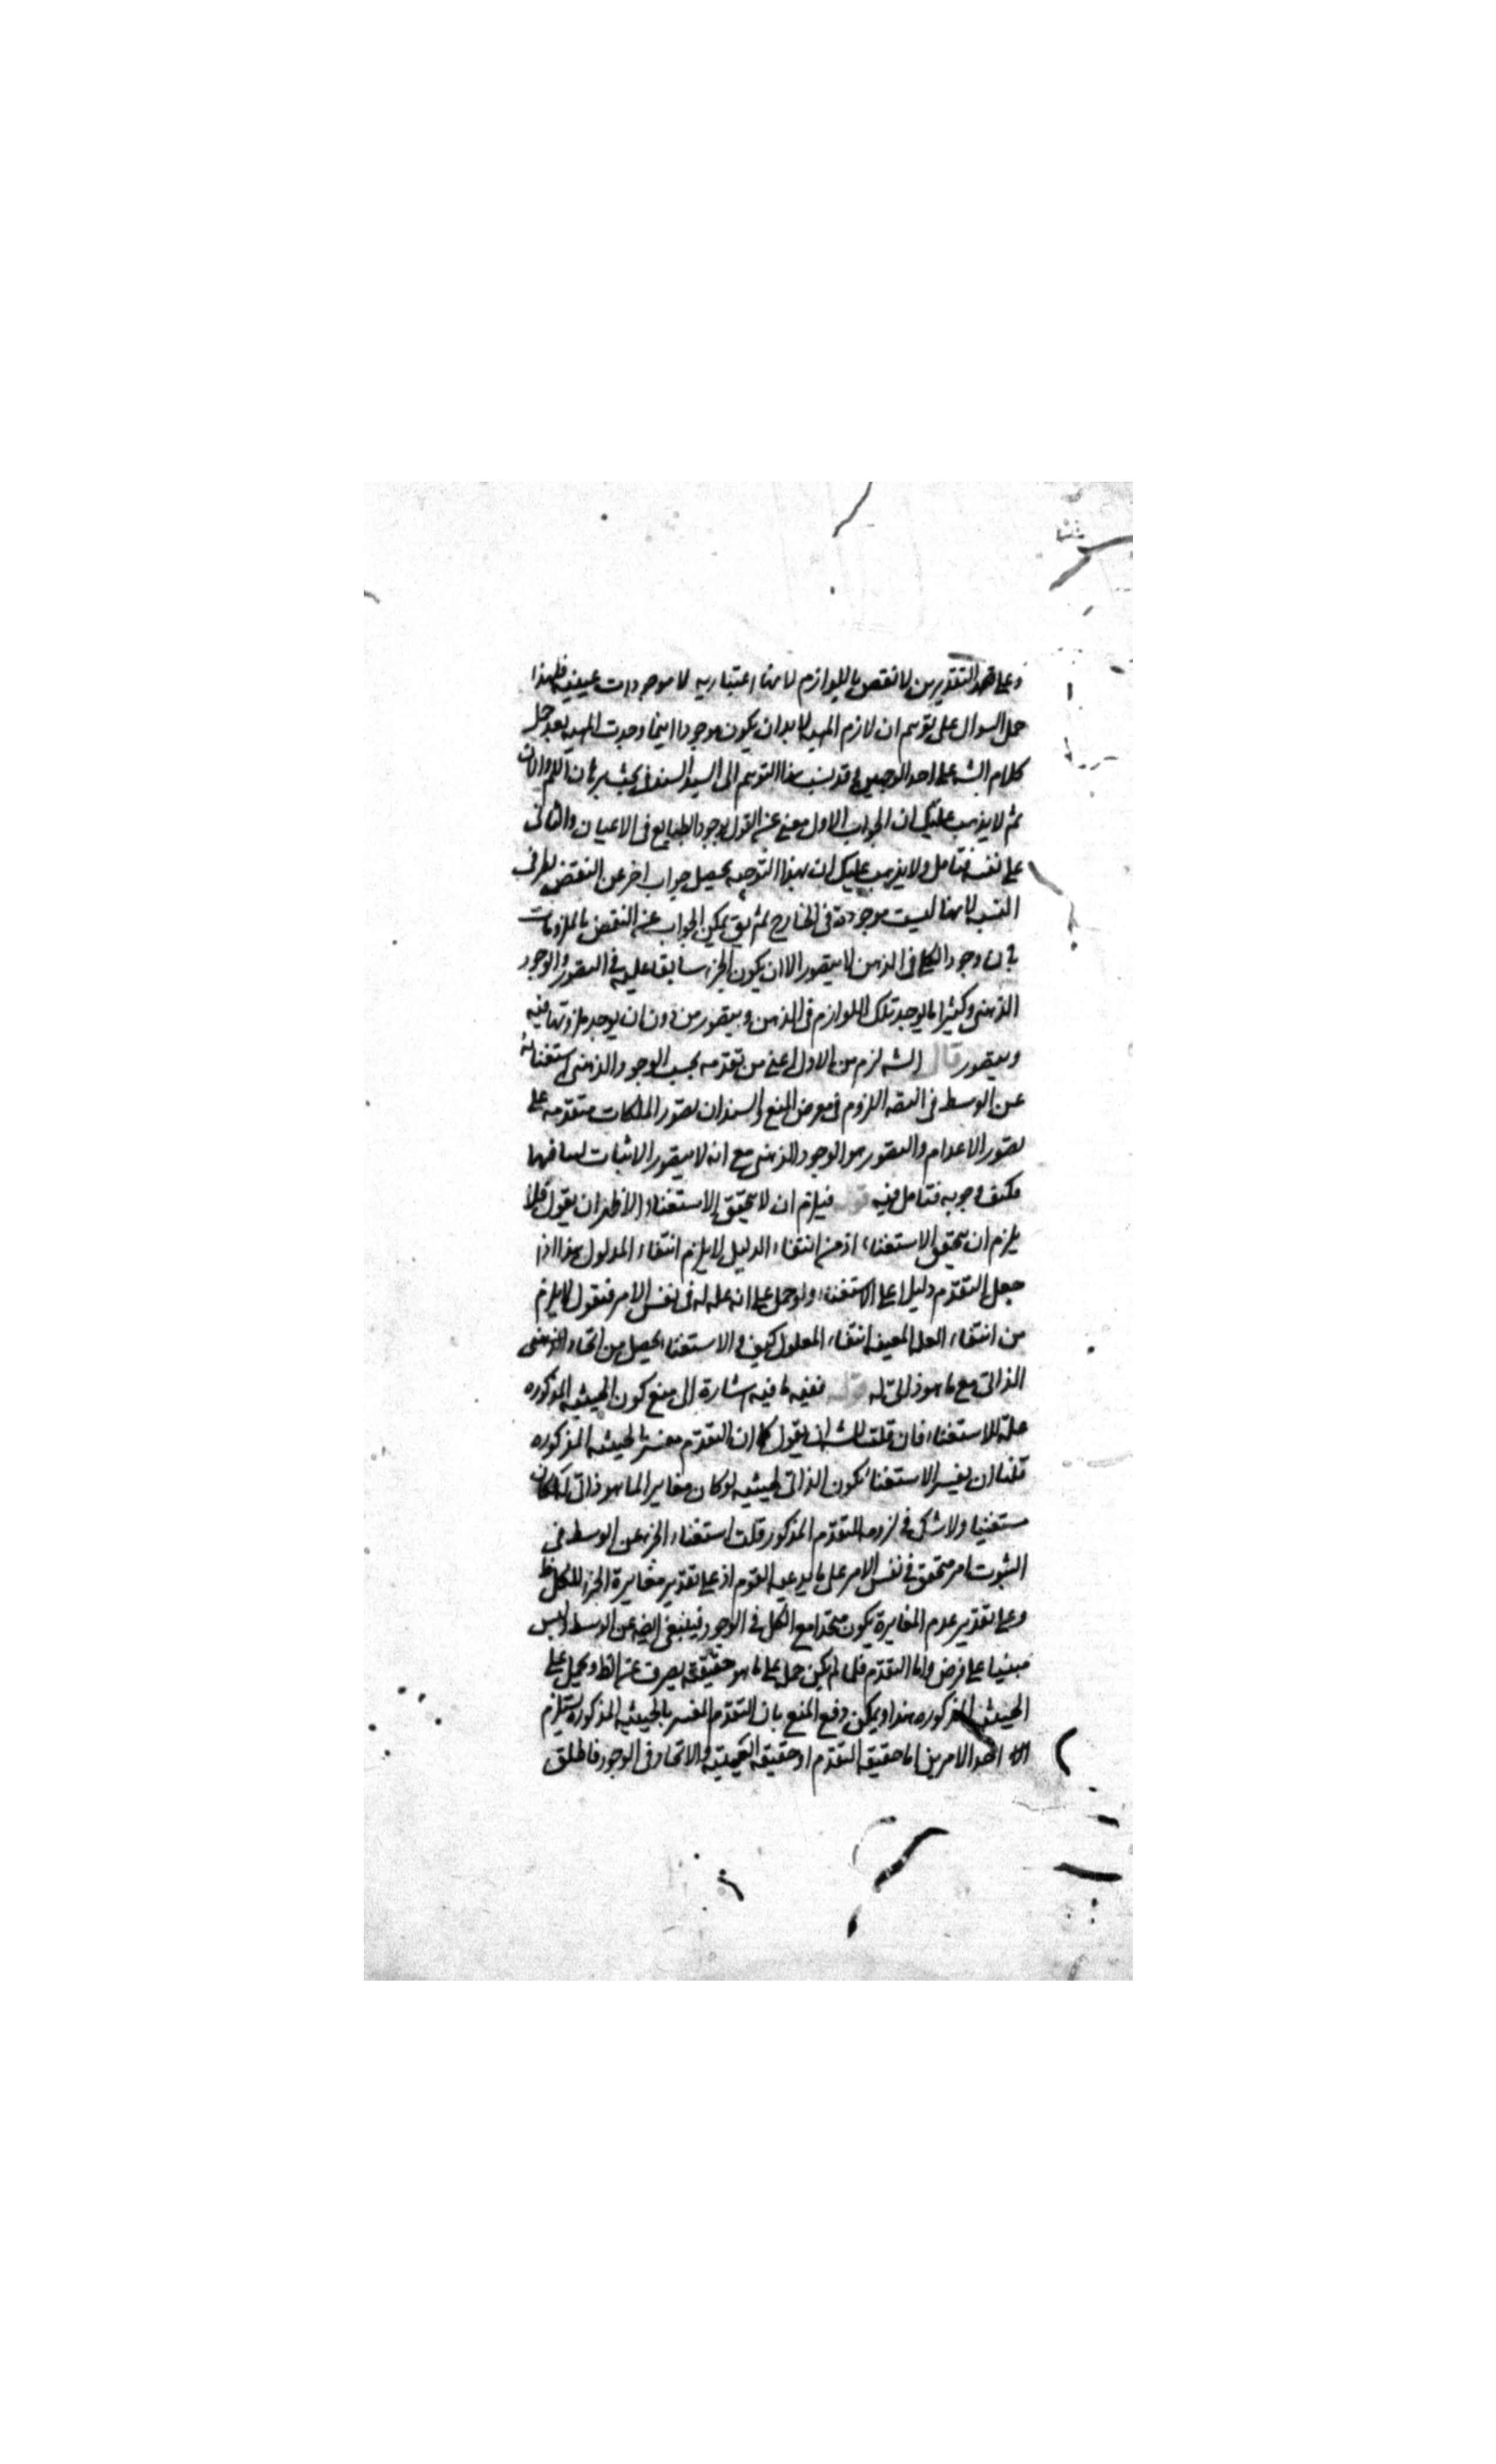 وعلى هذا التقديرين لا نقض باللوازم لانها اعتباريه لا موجودات عينيه فلهذا
حمل السوال على توهم ان لازم المهيه لا بد ان يكون موجودا اينما وجدت المهيه بعد حمل
كلام الشه على احد الوجهين و قد نسب هذا التوهم الى السيد السند في
ثم لا يذهب عليك ان الجواب الاول مبني على القول بوجود الطبايع في الاعيان والثاني
على نفيه فتامل ولا يذهب عليك ان بهذا التوجيه يحصل جواب اخر عن النقض بطرفي
النسب لانها ليست موجودة في الخارج ثم يق يمكن الجواب عن النقض بالملزومات
بان وجود الكل في الذهن لا يتصور الا ان يكون الجزء سابقا عليه في التصور والوجود
الذهني وكثيرا ما يوجد تلك اللوازم في الذهن ويتصور من دون ان يوجد ملزوماتها فيه
ويتصور قال الشه لزم من الاول اعني من تقدمه بحسب الوجود الذهني استغنائه
عن الوسط في التصه اللزوم في معرض المنع والسند ان تصور الملكات متقدمه على
تصور الاعدام والتصور هو الوجود الذهني مع انه لا يتصور الاثبات لسا فيها
فكيف وجوبه فتامل فيه قوله فيلزم ان لا يتحقق الاستغناء الاظهر ان يقول فلا
يلزم ان يتحقق الاستغناء اذ من انتفاء الدليل لا يلزم انتفاء المدلول هذا اذا
جعل التقدم دليلا على الاستغناء ولو حمل على انه علة له في نفس الامر فنقول لا يلزم
من انتفاء العله المعينه انتفاء المعلول كيف و الاستغناء يحصل من اتحاد الذهني
الذاتي مع ما هو ذاتي له قوله ففيه ما فيه اشارة الى منع كون الحيثيه المذكوره
علة للاستغناء فان قلت للشه ان يقول كما ان التقدم مفسر بالحيثيه المذكوره
قلنا ان يفسر الاستغناء بكون الذاتي بحيثيه لو كان مغايرا لما هو ذاتي له لكان
مستغنيا ولا شك في لزومه للتقدم المذكور قلت استغناء الجزء عن الوسط في
الثبوت امر متحقق في نفس الامر على ما يدعيه القوم اذ على تقدير مغايرة الجزء للكل ظ
وعلى تقدير عدم المغايرة يكون متحدا مع الكل في الوجود فيستغني ايضه عن الوسط وليس
مبنيا على فرض واما التقدم فلما لم يكن حمله على ما هو حقيقة يصرف عن الظ ويحمل على
الحيثيه المذكوره هذا ويمكن دفع المنع بان التقدم المفسر بالحيثيه المذكوره يستلزم
احد الامرين اما حقيقه التقدم او حقيقه العينيه والاتحاد في الوجود فاطلق